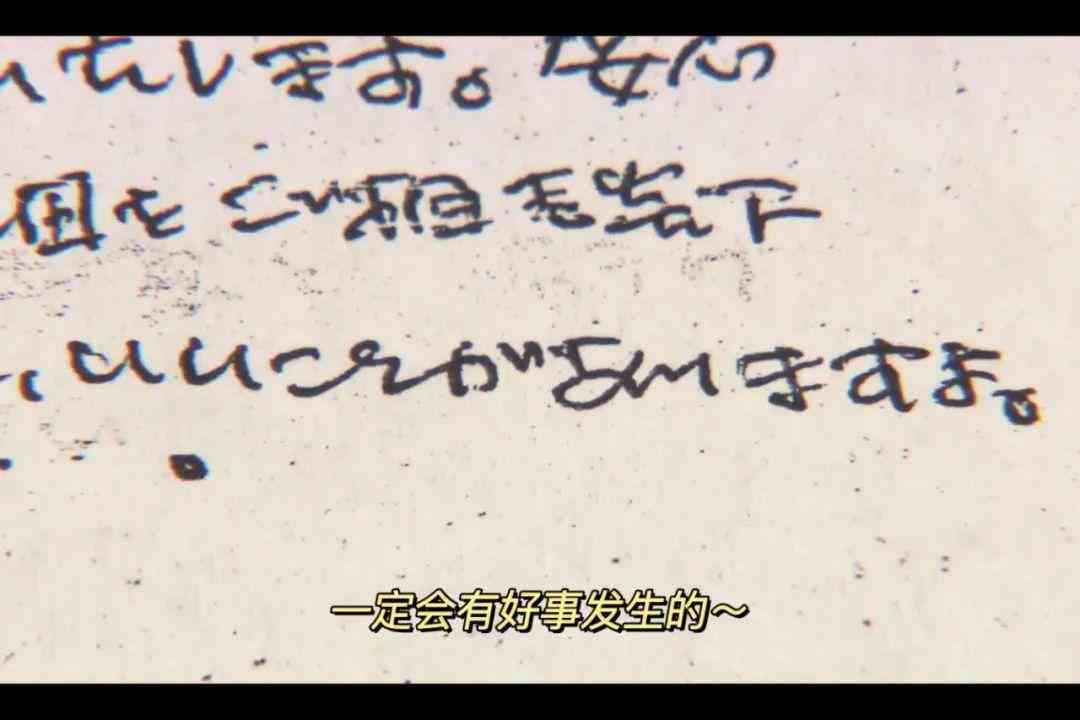 いたします。安心
をご
、いいことがありますよ。
一定会有好事发生的～